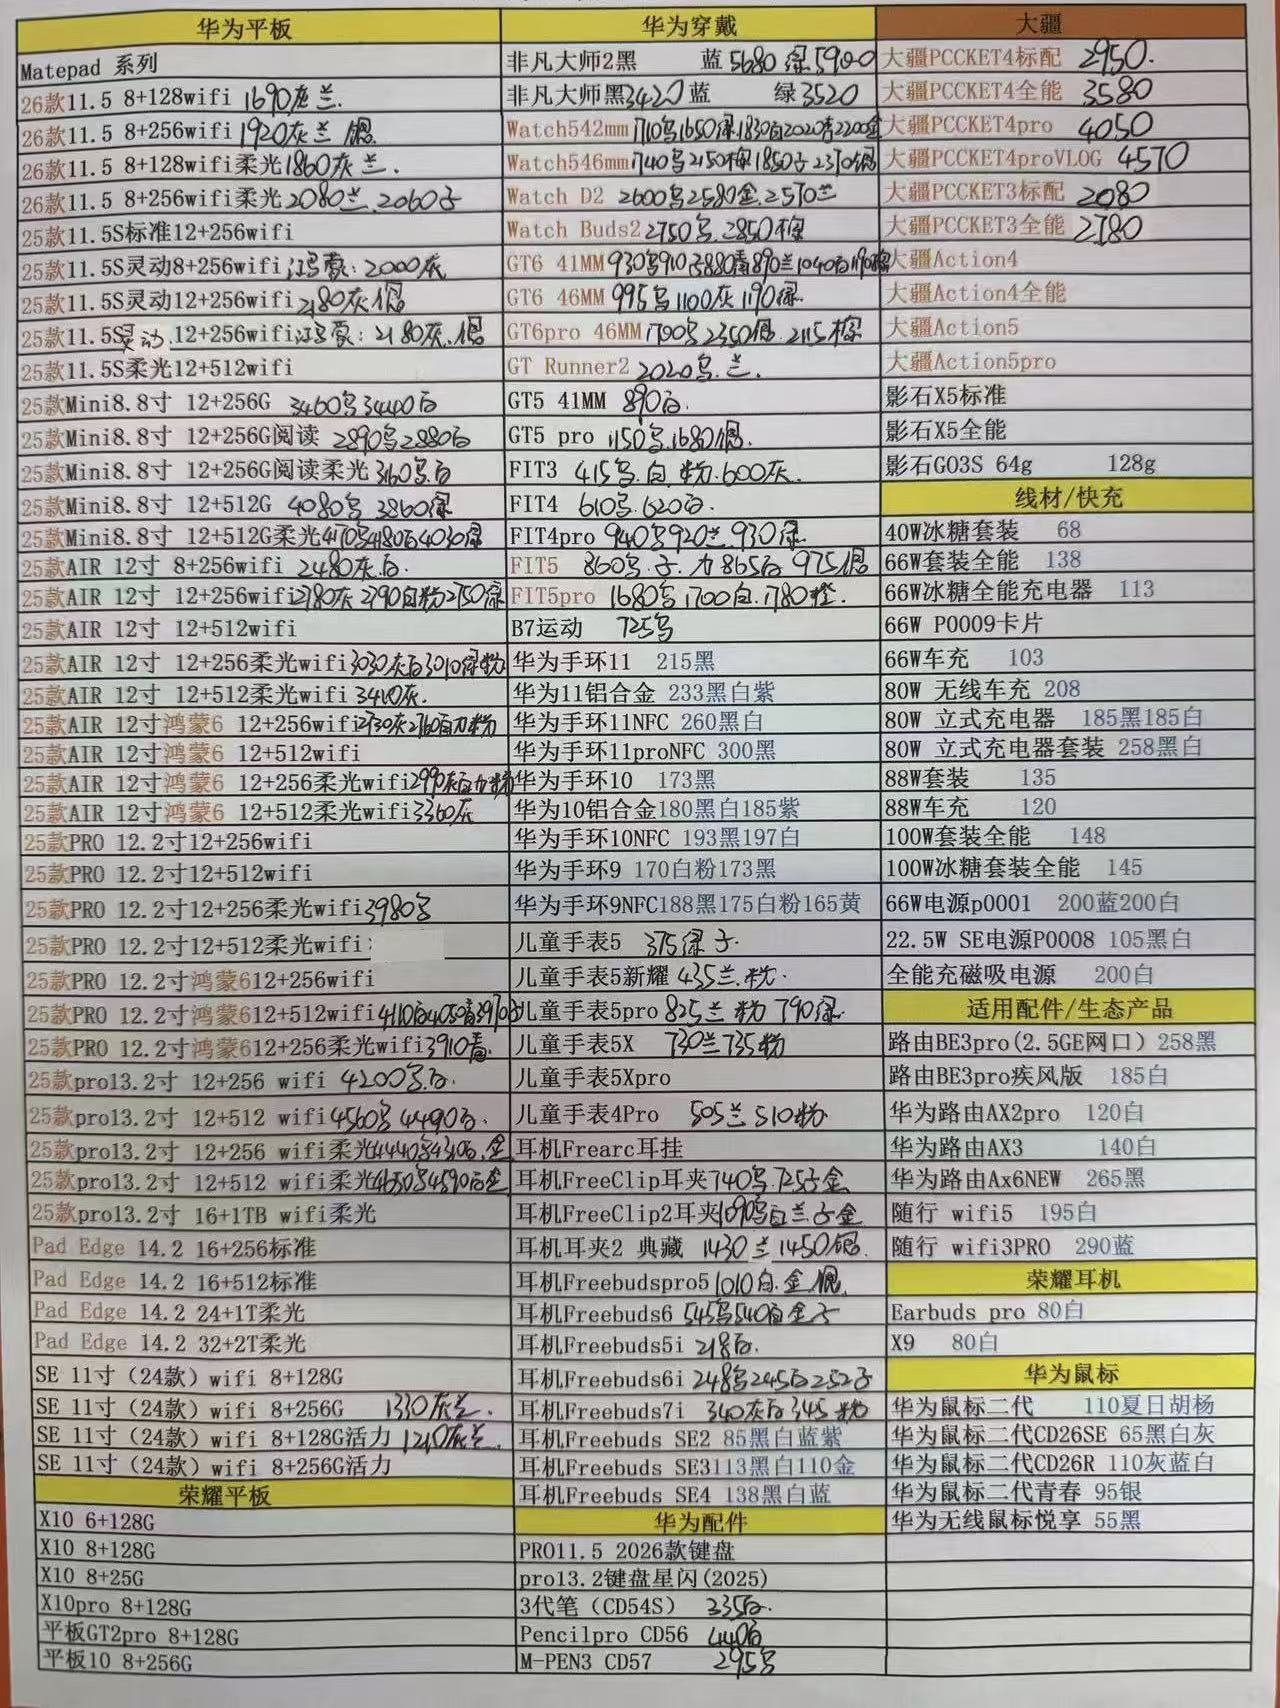 华为平板
Matepad 系列
26款11.5 8+128wifi 1690灰兰.
26款11.5 8+256wifi 1920灰兰 银
26款11.5 8+128wifi柔光1860灰兰.
26款11.5 8+256wifi柔光2080兰.2060子
25款11.5S标准12+256wifi
25款11.5S灵动8+256wifi 鸿蒙: 2000灰
25款11.5S灵动12+256wifi 2180灰银
25款11.5S灵动.12+256wifi鸿蒙: 2180灰.银
25款11.5S柔光12+512wifi
25款Mini8.8寸 12+256G 3460鸟3440白
25款Mini8.8寸 12+256G阅读 2890鸟2880白
25款Mini8.8寸 12+256G阅读柔光3160鸟白
25款Mini8.8寸 12+512G 4080鸟 3860绿
25款Mini8.8寸 12+512G柔光4170鸟4180白4030绿
25款AIR 12寸 8+256wifi 2480灰.白.
25款AIR 12寸 12+256wifi2780灰2790白粉2750绿
25款AIR 12寸 12+512wifi
25款AIR 12寸 12+256柔光wifi3030灰白3010绿粉
25款AIR 12寸 12+512柔光wifi3410灰.
25款AIR 12寸鸿蒙6 12+256wifi2730灰2760白力粉
25款AIR 12寸鸿蒙6 12+512wifi
25款AIR 12寸鸿蒙6 12+256柔光wifi2990灰白力粉
25款AIR 12寸鸿蒙6 12+512柔光wifi3360灰
25款PRO 12.2寸12+256wifi
25款PRO 12.2寸12+512wifi
25款PRO 12.2寸12+256柔光wifi3980鸟
25款PRO 12.2寸12+512柔光wifi
25款PRO 12.2寸鸿蒙612+256wifi
25款PRO 12.2寸鸿蒙612+512wifi4110白4050青3970
25款PRO 12.2寸鸿蒙612+256柔光wifi3910青
25款pro13.2寸 12+256 wifi 4200鸟白.
25款pro13.2寸 12+512 wifi4560鸟4490白.
25款pro13.2寸 12+256 wifi柔光4440鸟4310白.金
25款pro13.2寸 12+512 wifi柔光4650鸟4590白金
25款pro13.2寸 16+1TB wifi柔光
Pad Edge 14.2 16+256标准
Pad Edge 14.2 16+512标准
Pad Edge 14.2 24+1T柔光
Pad Edge 14.2 32+2T柔光
SE 11寸（24款）wifi 8+128G
SE 11寸（24款）wifi 8+256G 1330灰兰.
SE 11寸（24款）wifi 8+128G活力 1210灰兰.
SE 11寸（24款）wifi 8+256G活力
荣耀平板
X10 6+128G
X10 8+128G
X10 8+25G
X10pro 8+128G
平板GT2pro 8+128G
平板10 8+256G
华为穿戴
非凡大师2黑 蓝5680绿5900
非凡大师黑3420蓝 绿3520
Watch542mm1710鸟1650绿.1830白2020青2200金
Watch546mm1740鸟2150棕1850子2370银
Watch D2 2600鸟2580金.2570兰
Watch Buds2 2750鸟.2850棕
GT6 41MM930鸟910子880青890兰1040白1190棕
GT6 46MM 995鸟1100灰1190绿
GT6pro 46MM1700鸟2350银.2115棕
GT Runner2 2020鸟.兰.
GT5 41MM 890白.
GT5 pro 1150鸟.1680银.
FIT3 415鸟.白.粉.600灰.
FIT4 610鸟.620白.
FIT4pro 940鸟920兰.930绿
FIT5 860鸟.子.力865白975银
FIT5pro 1680鸟1700白.1780橙.
B7运动 725鸟
华为手环11 215黑
华为11铝合金 233黑白紫
华为手环11NFC 260黑白
华为手环11proNFC 300黑
华为手环10 173黑
华为10铝合金180黑白185紫
华为手环10NFC 193黑197白
华为手环9 170白粉173黑
华为手环9NFC188黑175白粉165黄
儿童手表5 375绿子.
儿童手表5新耀 435兰.粉.
儿童手表5pro 825兰 粉 790绿.
儿童手表5X 730兰735粉
儿童手表5Xpro
儿童手表4Pro 505兰510粉
耳机Frearc耳挂
耳机FreeClip耳夹740鸟.725子金
耳机FreeClip2耳夹1090鸟白兰.子金
耳机耳夹2 典藏 1430兰1450银.
耳机Freebudspro5 1010白.金银
耳机Freebuds6 545鸟540白金子
耳机Freebuds5i 218白.
耳机Freebuds6i 248鸟245白252子
耳机Freebuds7i 340灰白345粉
耳机Freebuds SE2 85黑白蓝紫
耳机Freebuds SE3113黑白110金
耳机Freebuds SE4 138黑白蓝
华为配件
PRO11.5 2026款键盘
pro13.2键盘星闪(2025)
3代笔（CD54S） 335白.
Pencilpro CD56 440白
M-PEN3 CD57 295鸟
大疆
大疆PCCKET4标配 2950.
大疆PCCKET4全能 3580
大疆PCCKET4pro 4050
大疆PCCKET4proVLOG 4570
大疆PCCKET3标配 2080
大疆PCCKET3全能 2780
大疆Action4
大疆Action4全能
大疆Action5
大疆Action5pro
影石X5标准
影石X5全能
影石GO3S 64g 128g
线材/快充
40W冰糖套装 68
66W套装全能 138
66W冰糖全能充电器 113
66W P0009卡片
66W车充 103
80W 无线车充 208
80W 立式充电器 185黑185白
80W 立式充电器套装 258黑白
88W套装 135
88W车充 120
100W套装全能 148
100W冰糖套装全能 145
66W电源p0001 200蓝200白
22.5W SE电源P0008 105黑白
全能充磁吸电源 200白
适用配件/生态产品
路由BE3pro(2.5GE网口）258黑
路由BE3pro疾风版 185白
华为路由AX2pro 120白
华为路由AX3 140白
华为路由Ax6NEW 265黑
随行 wifi5 195白
随行 wifi3PRO 290蓝
荣耀耳机
Earbuds pro 80白
X9 80白
华为鼠标
华为鼠标二代 110夏日胡杨
华为鼠标二代CD26SE 65黑白灰
华为鼠标二代CD26R 110灰蓝白
华为鼠标二代青春 95银
华为无线鼠标悦享 55黑